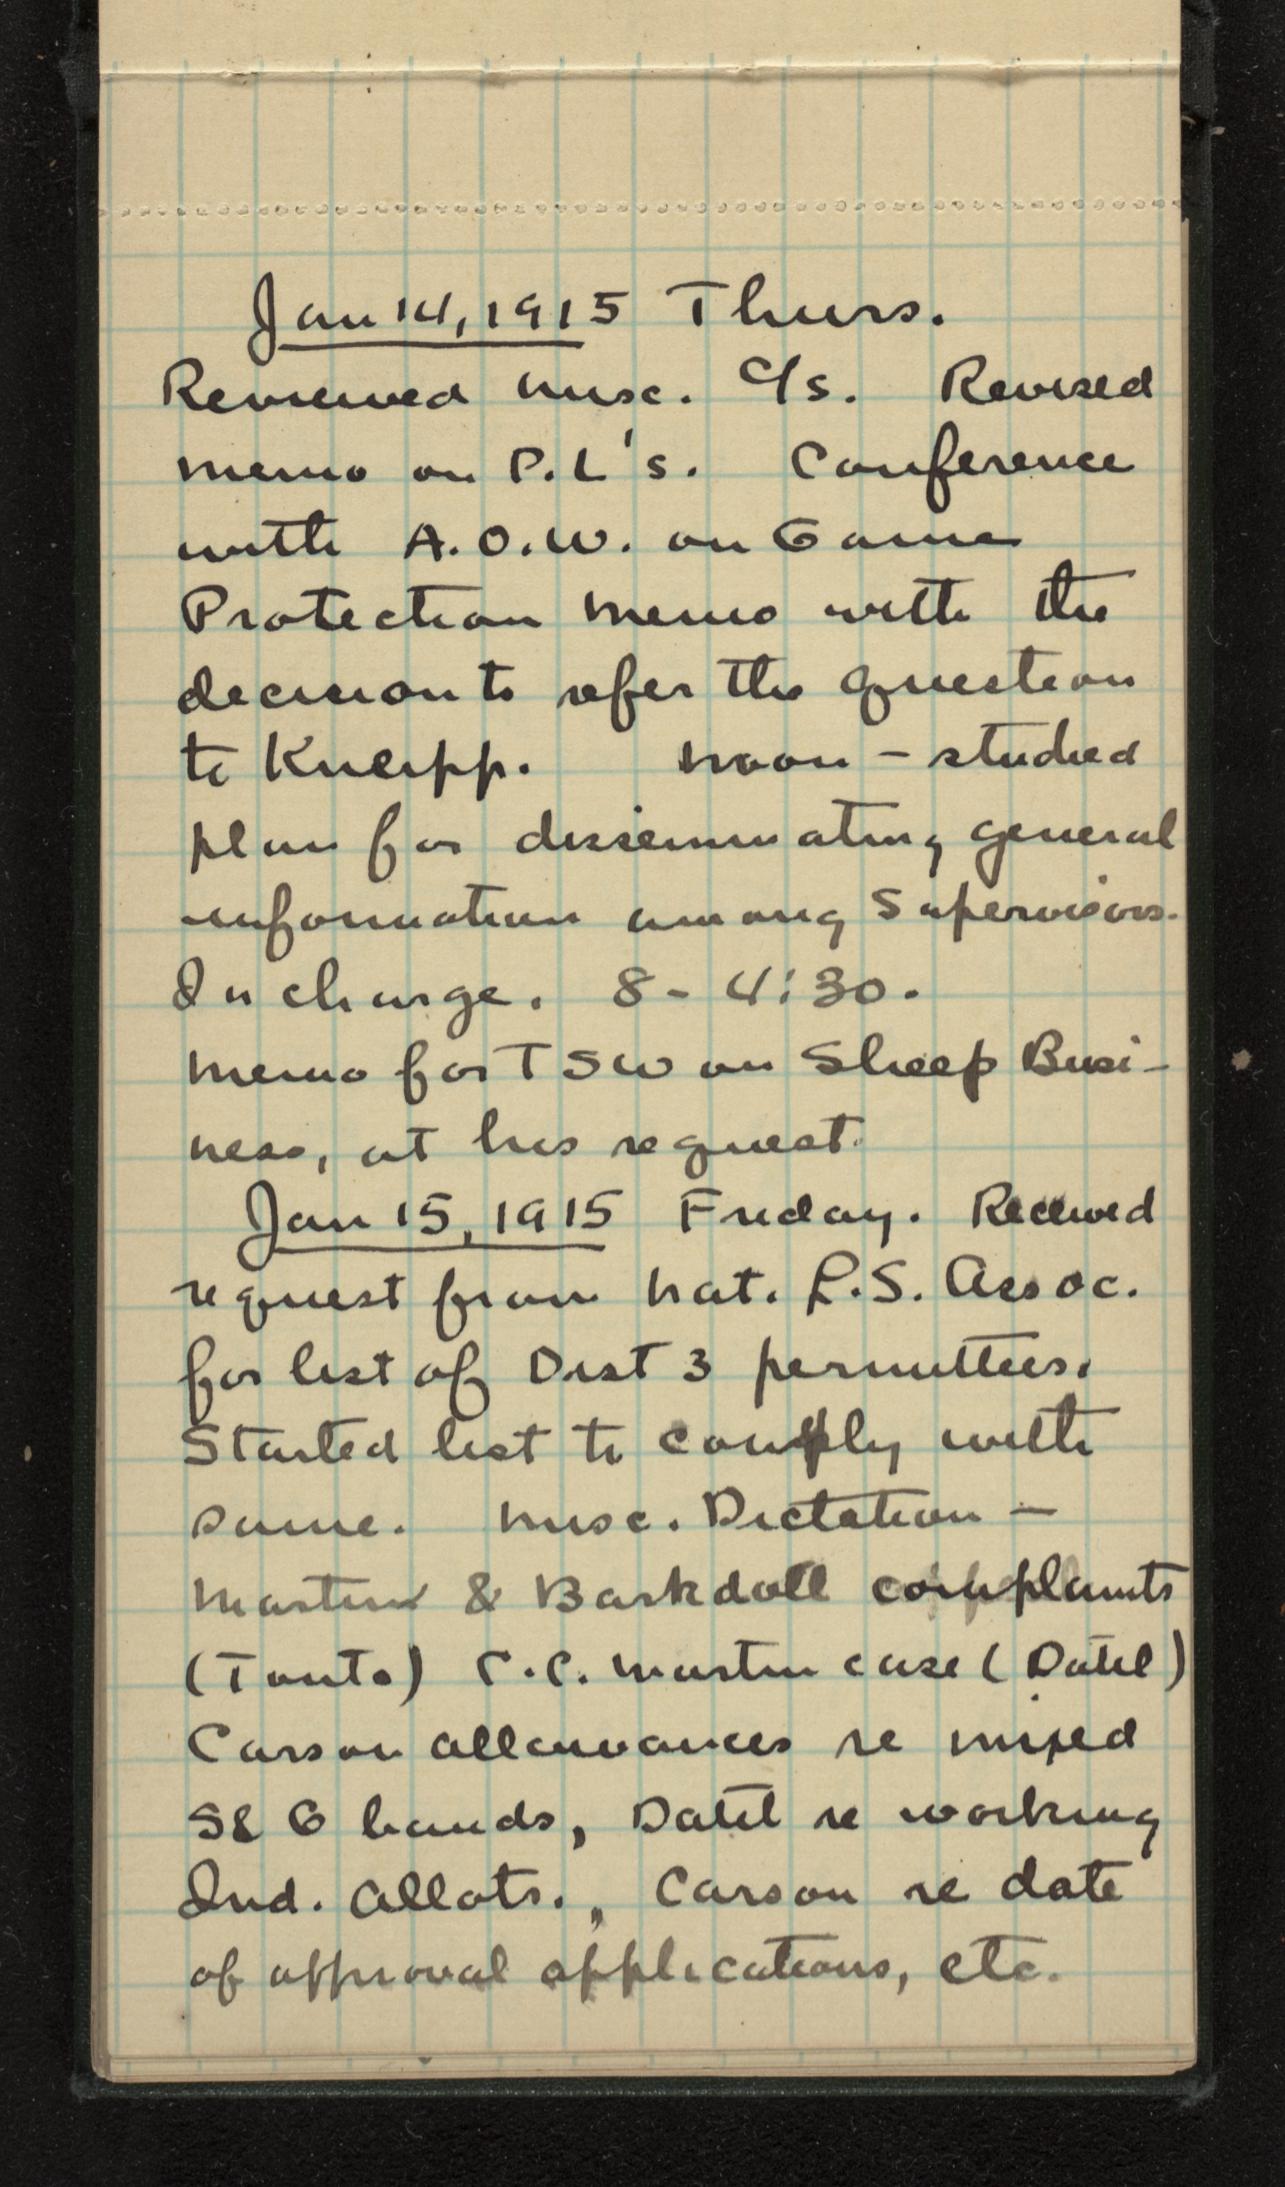 Jan 14, 1915 Thurs.
Reviewed misc. c/s. Revised
memo on P.L's. Conference
with A.O.W. on Game
Protection memo with the
decision to refer the question
to Kneipp. Noon – studied
plan for disseminating general
information among Supervisors.
In charge. 8 - 4:30.
Memo for TSW on Sheep Busi-
ness, at his request.
Jan 15, 1915 Friday. Received
request from Nat. L.S. Assoc.
for list of Dist 3 permittees.
Started list to comply with
same. Misc. Dictation –
Martin & Barkdoll complaints
(Tonto) C.C. Martin case (Datil)
Carson allowances re mixed
S & G bands, Datil re working
Ind. Allots., Carson re date
of approval applications, etc.